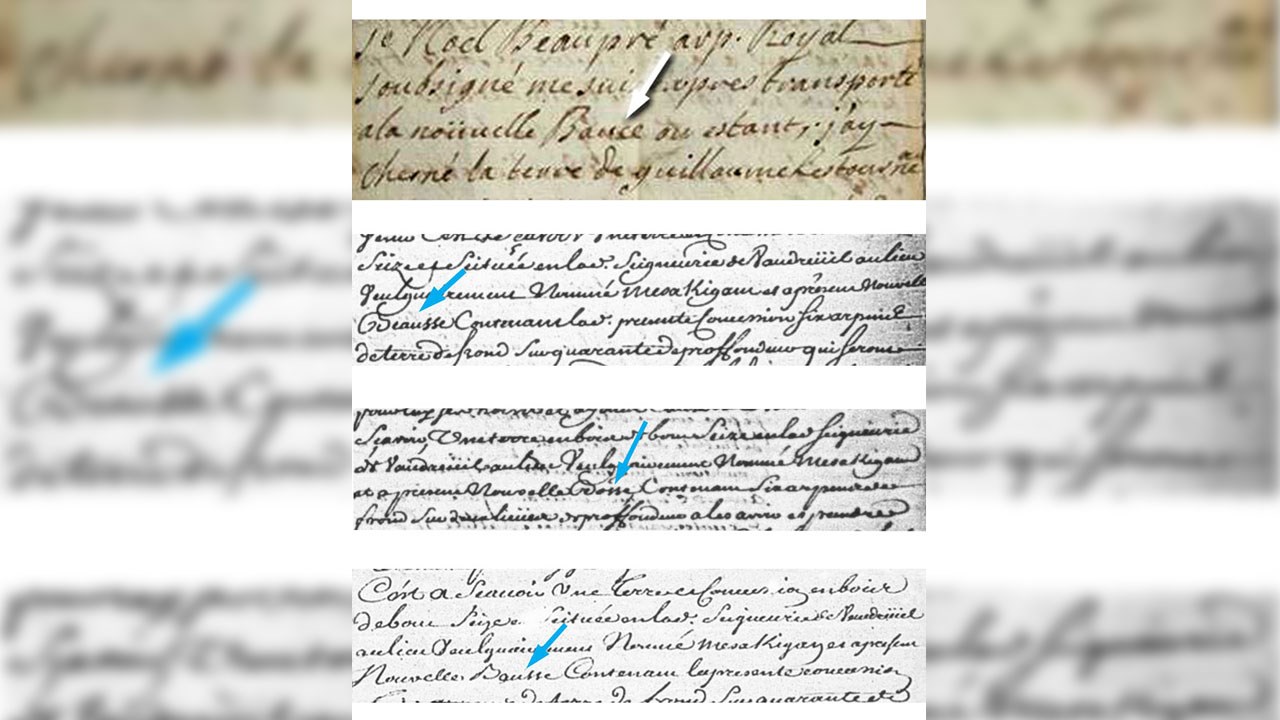 je Noel Beaupré arp. Royal
soubsigné me suis expres transporté
a la noüuelle Bauce ou estant, j'ay
cherné la terre de guillaume Lestourné
Seize et Scituée en lad. Seigneurie de Vaudreüil au lieu
Veulguerement Nommé Mesakigam et apresen Nouvelle
Beausse Contenant lad. presente Concession six arpents
de terre de frond Sur quarante de proffondeur qui seront
Scavoir Une terre en bois de bout Seize en lad Seigneurie
de Vaudreüil au lieu Veulguairement Nommé Mesakigan
et a present Nouvelle Bosse Contenant Six arpents de
frond Sur
C'est a Scauoir Une Terre et Concession en bois
de bout Seize Scituée en lad. Seigneurie de Vaudreüil
au lieu Veulguairement Nommé Mesakigan et a present
Nouvelle Bausse Contenant la presente concession
de terre de frond Sur quarante de